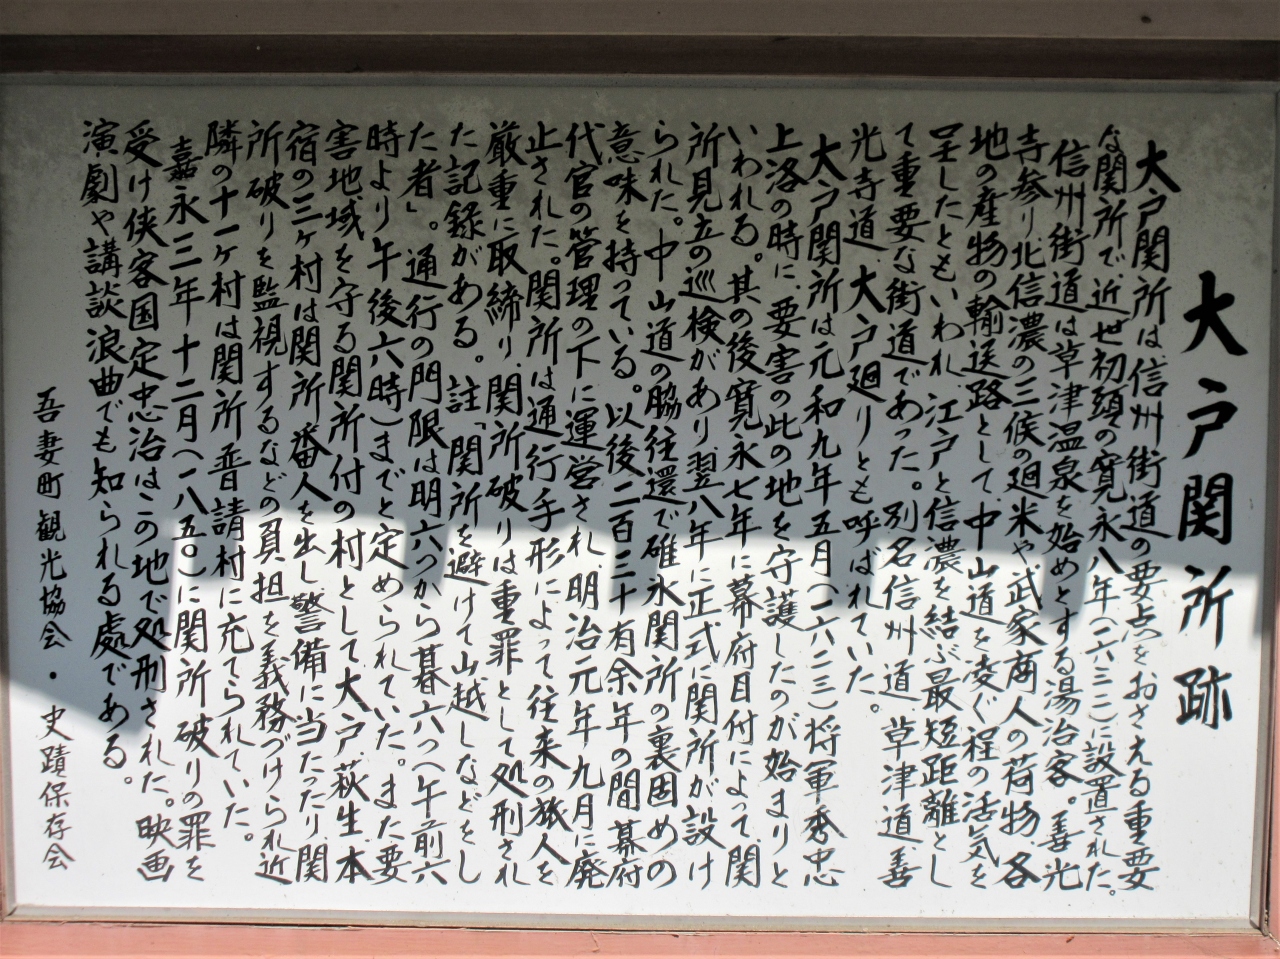 大戸関所跡
大戸関所は、信州街道の要点をおさえる重要
な関所で、近世初頭の寛永八年(一六三一)に設置された。
信州街道は草津温泉を始めとする湯治客。善光
寺参り、北信濃の三候の廻米や、武家、商人の荷物、各
地の産物の輸送路として、中山道を凌ぐ程の活気を
呈したともいわれ、江戸と信濃を結ぶ最短距離とし
て重要な街道であった。別名信州道、草津道、善
光寺道、大戸廻りとも呼ばれていた。
大戸関所は元和九年五月(一六二三)将軍秀忠
上洛の時に、要害の此の地を守護したのが始まりと
いわれる。其の後寛永七年に幕府目付によって、関
所見立の巡検があり、翌八年に正式に関所が設け
られた。中山道の脇往還で碓氷関所の裏固めの
意味を持っている。以後二百三十有余年の間、幕府
代官の管理の下に運営され、明治元年九月に廃
止された。関所は通行手形によって往来の旅人を
厳重に取締り、関所破りは重罪として処刑され
た記録がある。註「関所を避けて山越しなどをし
た者」。通行の門限は明六つから暮六つ(午前六
時より午後六時)までと定められていた。また要
害地域を守る関所付の村として大戸、萩生、本
宿の三ヶ村は関所番人を出し、警備に当たったり、関
所破りを監視するなどの負担を義務づけられ、近
隣の十一ヶ村は関所普請村に充てられていた。
嘉永三年十二月(一八五〇)に関所破りの罪を
受け侠客国定忠治はこの地で処刑された。映画
演劇や講談浪曲でも知られる處である。
吾妻町観光協会・史蹟保存会